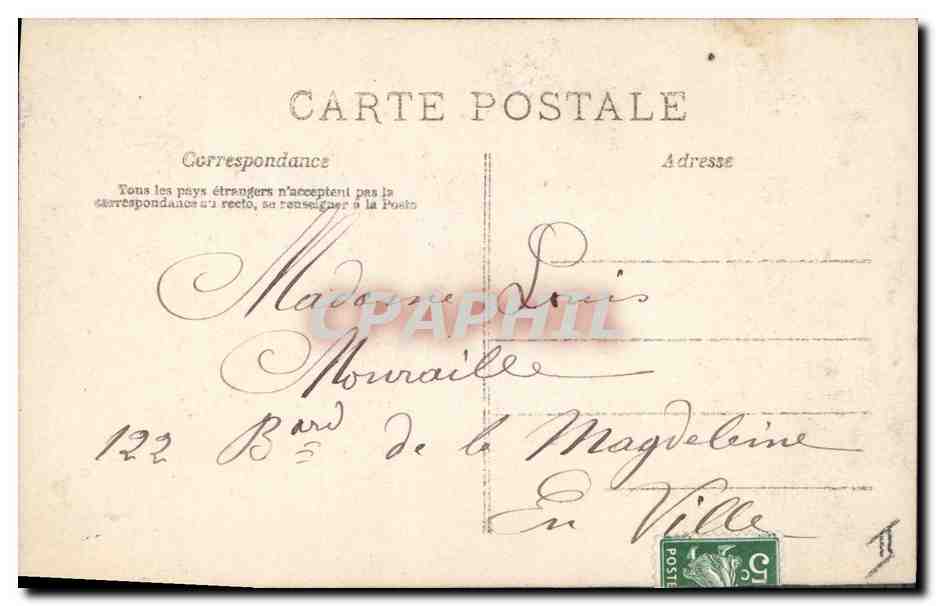 CARTE POSTALE
Correspondance
Adresse
Tous les pays étrangers n'acceptent pas la
correspondance au recto, se renseigner à la Poste
Madame Louis
Mouraille
122 Bard de la Magdeleine
En Ville
CPAPHIL
5c
POSTES